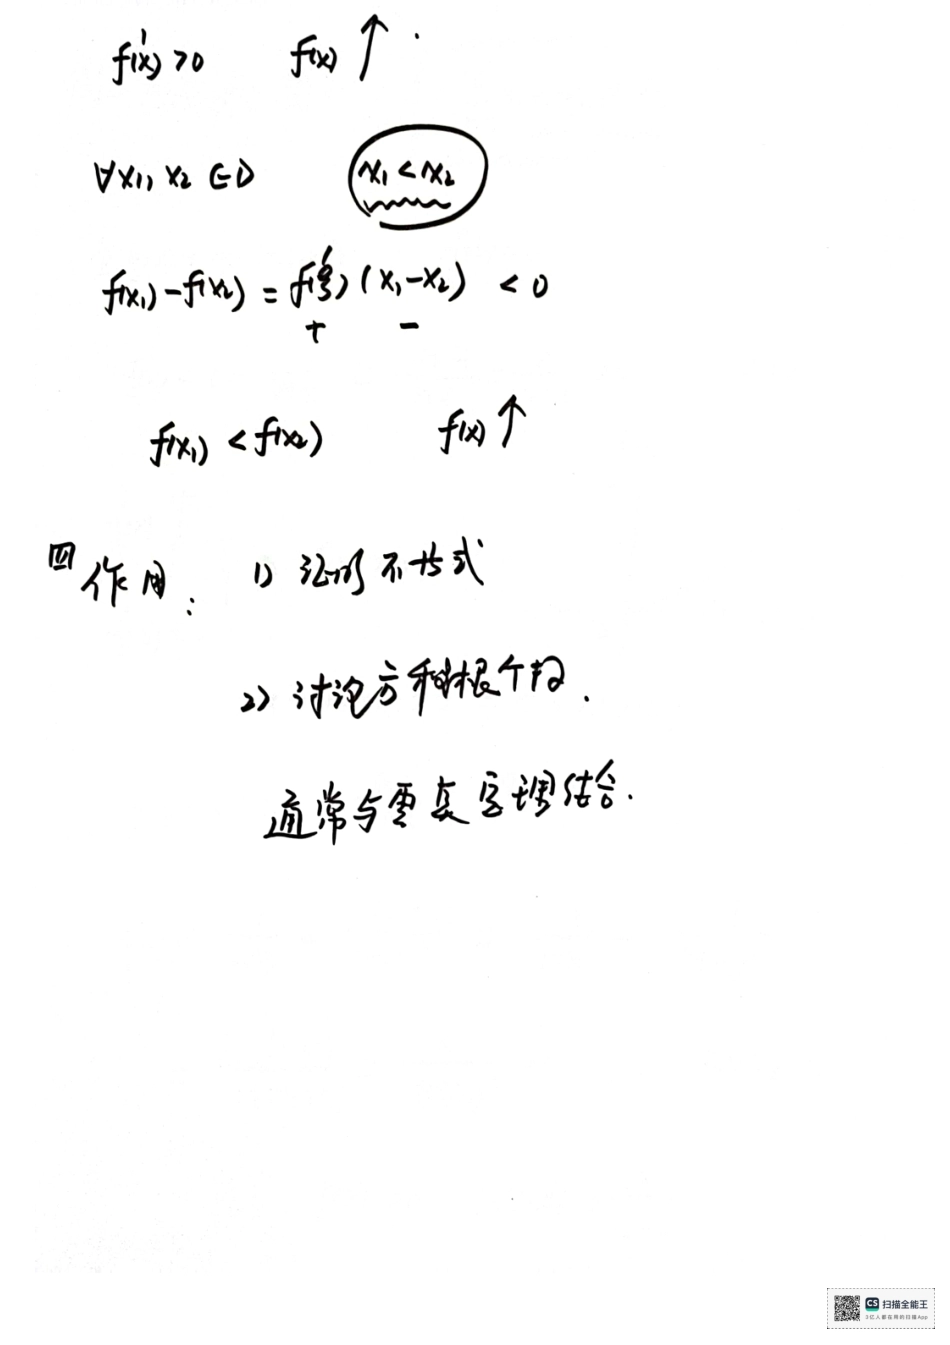 f'(x)>0 f(x)↑.
∀x₁, x₂∈D x₁<x₂
f(x₁)-f(x₂)=f'(ξ)(x₁-x₂)<0
+ -
f(x₁)<f(x₂) f(x)↑
四 作用: 1) 证明不等式
2) 讨论方程根个数.
通常与零点定理结合.
CS 扫描全能王
3亿人都在用的扫描App